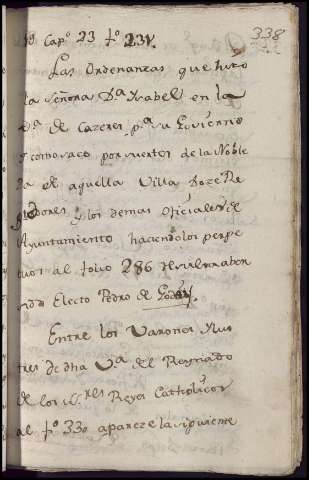 Capº 23 fº 231.
338
Las Ordenanzas que hizo
la Señora Dª Ysabel en la
Vª de Cazeres pª su Govierno
y como saco por suertes de la Noble
za de aquella Villa Doze Re
gidores y los demas Oficiales de
Ayuntamiento haciendolos perpe
tuos al folio 286
Electo Pedro de Godoy.
Entre los Varones Ylus
tres de dha Vª del Reynado
de los SS.res Reyes Catholicos
al fº 330 apareze la siguiente